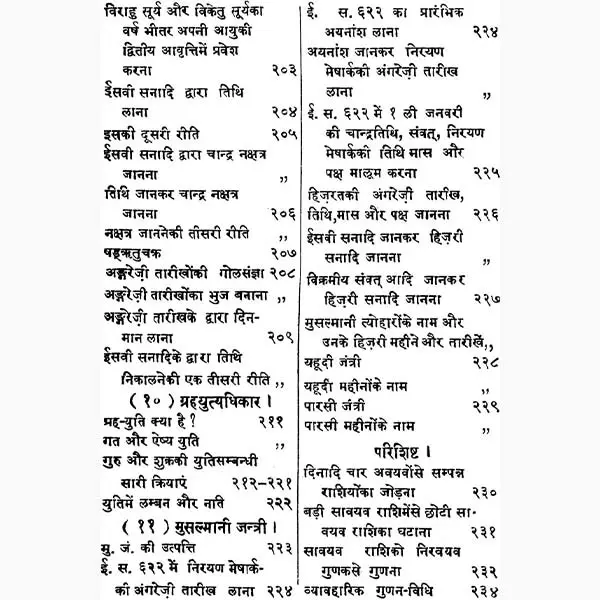 विराहु सूर्य और विकेतु सूर्यका
वर्ष भीतर अपनी आयुकी
द्वितीय आवृत्तिमें प्रवेश
करना २०३
ईसवी सनादि द्वारा तिथि
लाना २०४
इसकी दूसरी रीति २०५
ईसवी सनादि द्वारा चान्द्र नक्षत्र
जानना ,,
तिथि जानकर चान्द्र नक्षत्र
जानना २०६
नक्षत्र जाननेकी तीसरी रीति ,,
षड्ऋतुचक्र २०७
अङ्गरेज़ी तारीखोंकी गोलसंज्ञा २०८
अङ्गरेज़ी तारीखोंका भुज बनाना ,,
अङ्गरेज़ी तारीखके द्वारा दिन-
मान लाना २०९
ईसवी सनादिके द्वारा तिथि
निकालनेकी एक तीसरी रीति ,,
(१०) ग्रहयुत्यधिकार।
ग्रह-युति क्या है? २११
गत और ऐष्य युति ,,
गुरु और शुक्रकी युतिसम्बन्धी
सारी क्रियाएं २१२-२२१
युतिमें लम्बन और नति २२२
(११) मुसल्मानी जन्त्री।
मु. जं. की उत्पत्ति २२३
ई. स. ६२२ में निरयण मेषार्क-
की अंगरेज़ी तारीख लाना २२४
ई. स. ६२२ का प्रारंभिक
अयनांश लाना २२४
अयनांश जानकर निरयण
मेषार्ककी अंगरेज़ी तारीख
लाना ,,
ई. स. ६२२ में १ ली जनवरी
की चान्द्रतिथि, संवत्, निरयण
मेषार्ककी तिथि मास और
पक्ष मालूम करना २२५
हिज़रतकी अंगरेज़ी तारीख,
तिथि,मास और पक्ष जानना २२६
ईसवी सनादि जानकर हिज़री
सनादि जानना ,,
विक्रमीय संवत् आदि जानकर
हिज़री सनादि जानना २२७
मुसल्मानी त्योहारोंके नाम और
उनके हिज़री महीने और तारीखें,,
यहूदी जंत्री २२८
यहूदी महीनोंके नाम ,,
पारसी जंत्री २२९
पारसी महीनोंके नाम ,,
परिशिष्ट।
दिनादि चार अवयवोंसे सम्पन्न
राशियोंका जोड़ना २३०
बड़ी सावयव राशिमेंसे छोटी सा-
वयव राशिका घटाना २३१
सावयव राशिको निरवयव
गुणकसे गुणना २३२
व्यावहारिक गुणन-विधि २३४